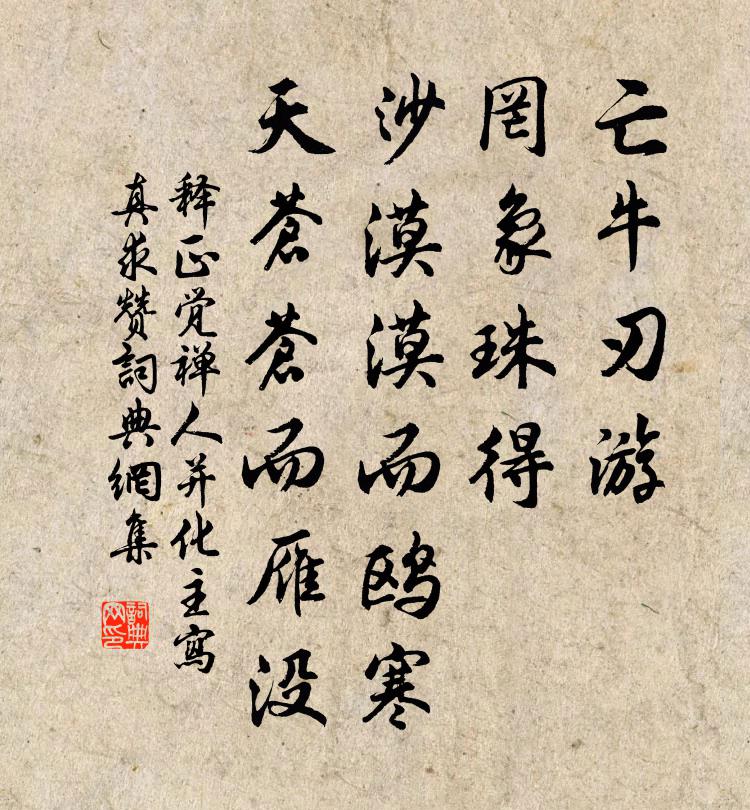 亡牛刃游
罔象珠得
沙漠漠而鸥寒
天蒼蒼而雁没
释正觉禅人并化主寫
真求赞詞典網集
詞典网印